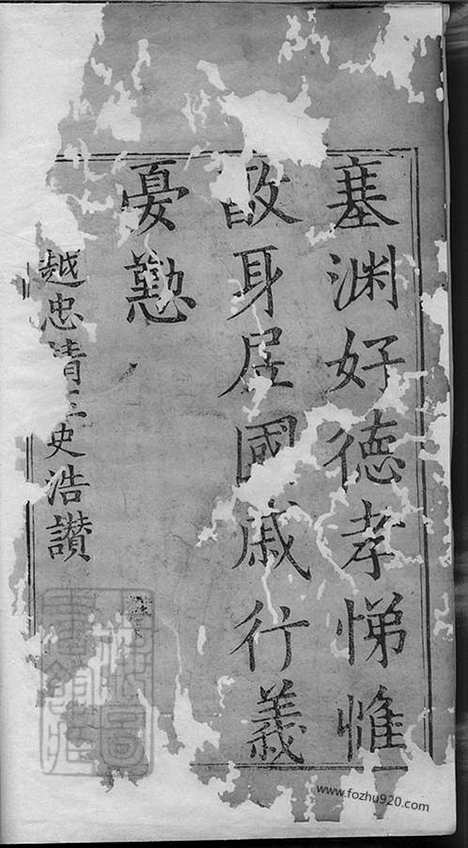 塞渊好德孝悌惟
故身居國戚行義
憂懃
越忠清王史浩讃
www.fozhu920.com